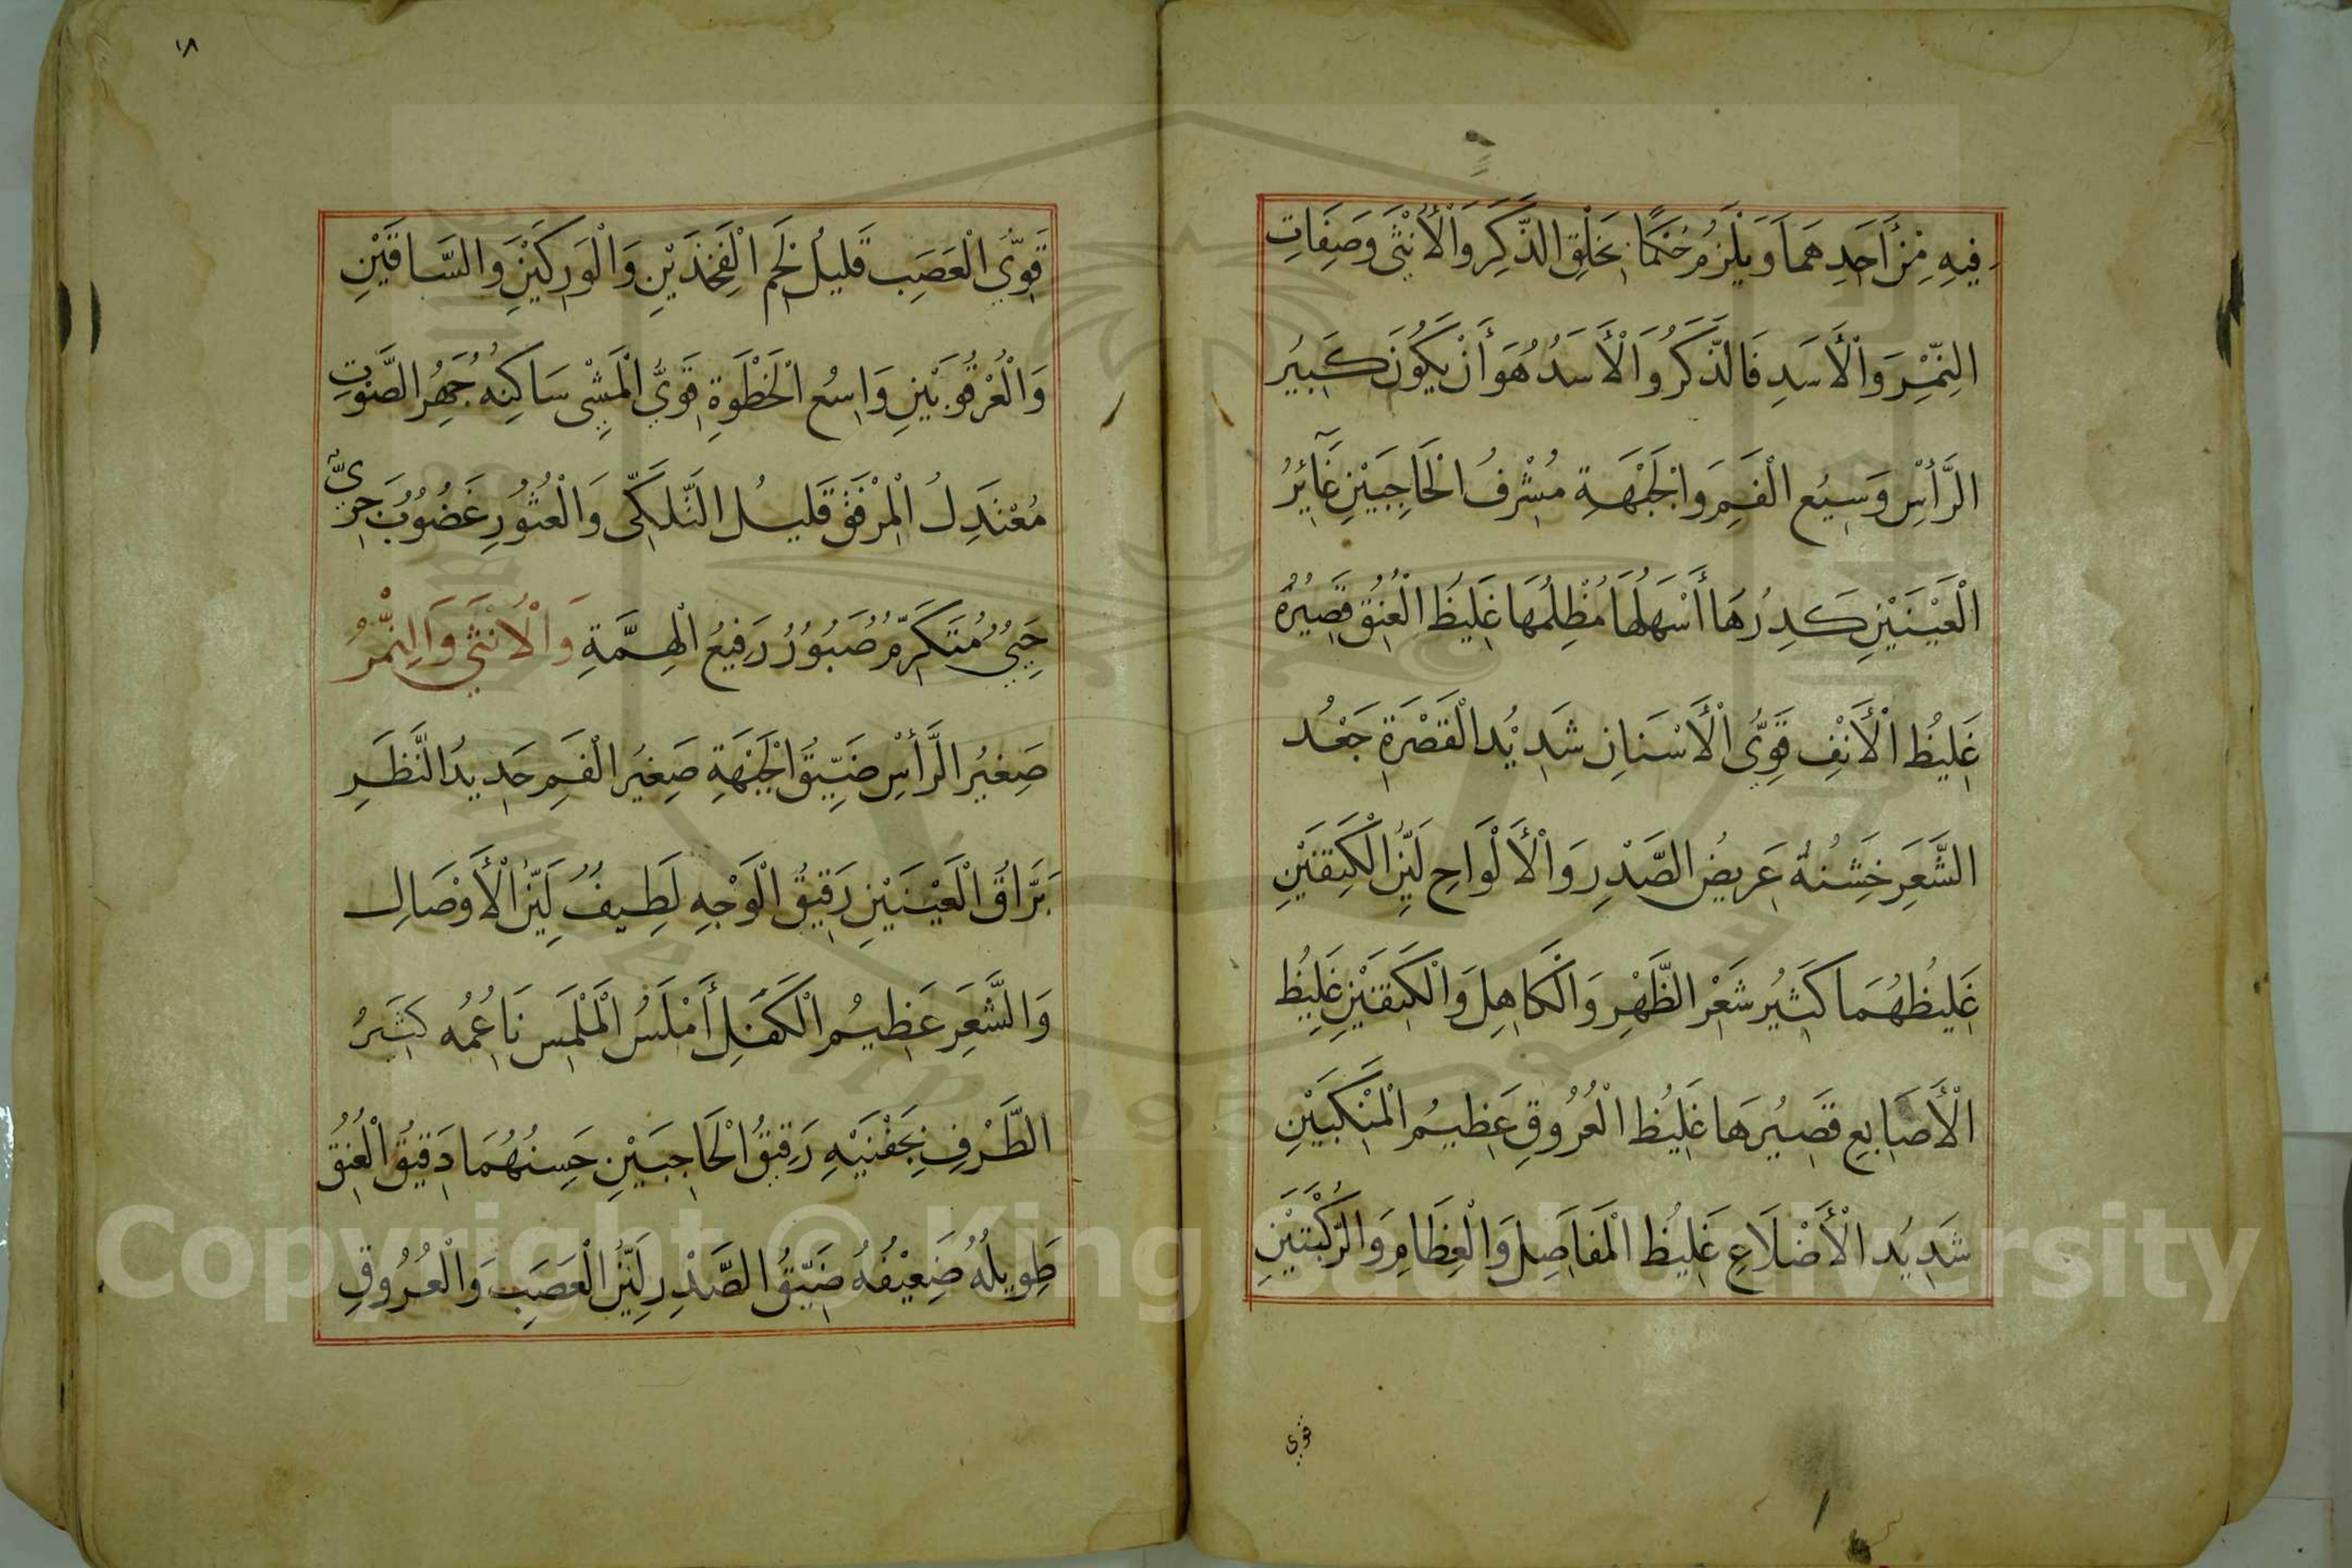 فِيهِ مِنْ أَحَدِهِمَا وَيَلْزَمُ حُكْمًا بِخَلْقِ الذَّكَرِ وَالْأُنْثَى وَصِفَاتِ
النَّمِرِ وَالْأَسَدِ فَالذَّكَرُ وَالْأَسَدُ هُوَ أَنْ يَكُونَ كَبِيرُ
الرَّأْسِ وَسِيعُ الْفَمِ وَالْجَبْهَةِ مُشْرِفُ الْحَاجِبَيْنِ غَآئِرُ
الْعَيْنَيْنِ كَدِرُهَا أَسْهَلُهَا مُظْلِمُهَا غَلِيظُ الْعُنُقِ قَصِيرُهُ
غَلِيظُ الْأَنْفِ قَوِيُّ الْأَسْنَانِ شَدِيْدُ الْقَصْرَةِ جَعْدُ
الشَّعَرِ خَشِنُهُ عَرِيضُ الصَّدْرِ وَالْأَلْوَاحِ لَيِّنُ الْكَتِفَيْنِ
غَلِيظُهُمَا كَثِيْرُ شَعْرِ الظَّهْرِ وَالْكَاهِلِ وَالْكَتِفَيْنِ غَلِيظُ
الْأَصَابِعِ قَصِيْرَهَا غَلِيْظُ الْعُرُوقِ عَظِيمُ الْمَنْكِبَيْنِ
شَدِيْدُ الْأَضْلَاعِ غَلِيظُ الْمَفَاصِلِ وَالْعِظَامِ وَالرُّكْبَتَيْنِ
قوي
١٨
قَوِيُّ الْعَصَبِ قَلِيلُ لَحْمِ الْفَخِذَيْنِ وَالْوَرِكَيْنِ وَالسَّاقَيْنِ
وَالْعُرْقُوبَيْنِ وَاسِعُ الْخَطْوَةِ قَوِيُّ الْمَشْيِ سَاكِنُهُ جَهِرُ الصَّوْتِ
مُعْتَدِلُ الْمِرْفَقِ قَلِيلُ التَّلَكِّي وَالْعُثُورِ غَضُوبٌ جَرِيٌّ
حَيِيٌّ مُتَكَرِّمٌ صَبُورٌ رَفِيعُ الْهِمَّةِ وَالْأُنْثَى وَالنَّمِرُ
صَغِيْرُ الرَّأْسِ ضَيِّقُ الْجَبْهَةِ صَغِيْرُ الْفَمِ حَدِيدُ النَّظَرِ
بَرَّاقُ الْعَيْنَيْنِ رَقِيقُ الْوَجْهِ لَطِيفٌ لَيِّنُ الْأَوْصَالِ
وَالشَّعَرِ عَظِيمُ الْكَفَلِ أَمْلَسُ الْمَلْمَسِ نَاعِمُهُ كَثِيْرُ
الطَّرْفِ بِجَفْنَيْهِ رَقِيقُ الْحَاجِبَيْنِ حَسِنُهُمَا دَقِيقُ الْعُنُقِ
طَوِيلُهُ ضَعِيْفُهُ ضَيِّقُ الصَّدْرِ لَيِّنُ الْعَصَبِ وَالْعُرُوقِ
Copyright © King Saud University